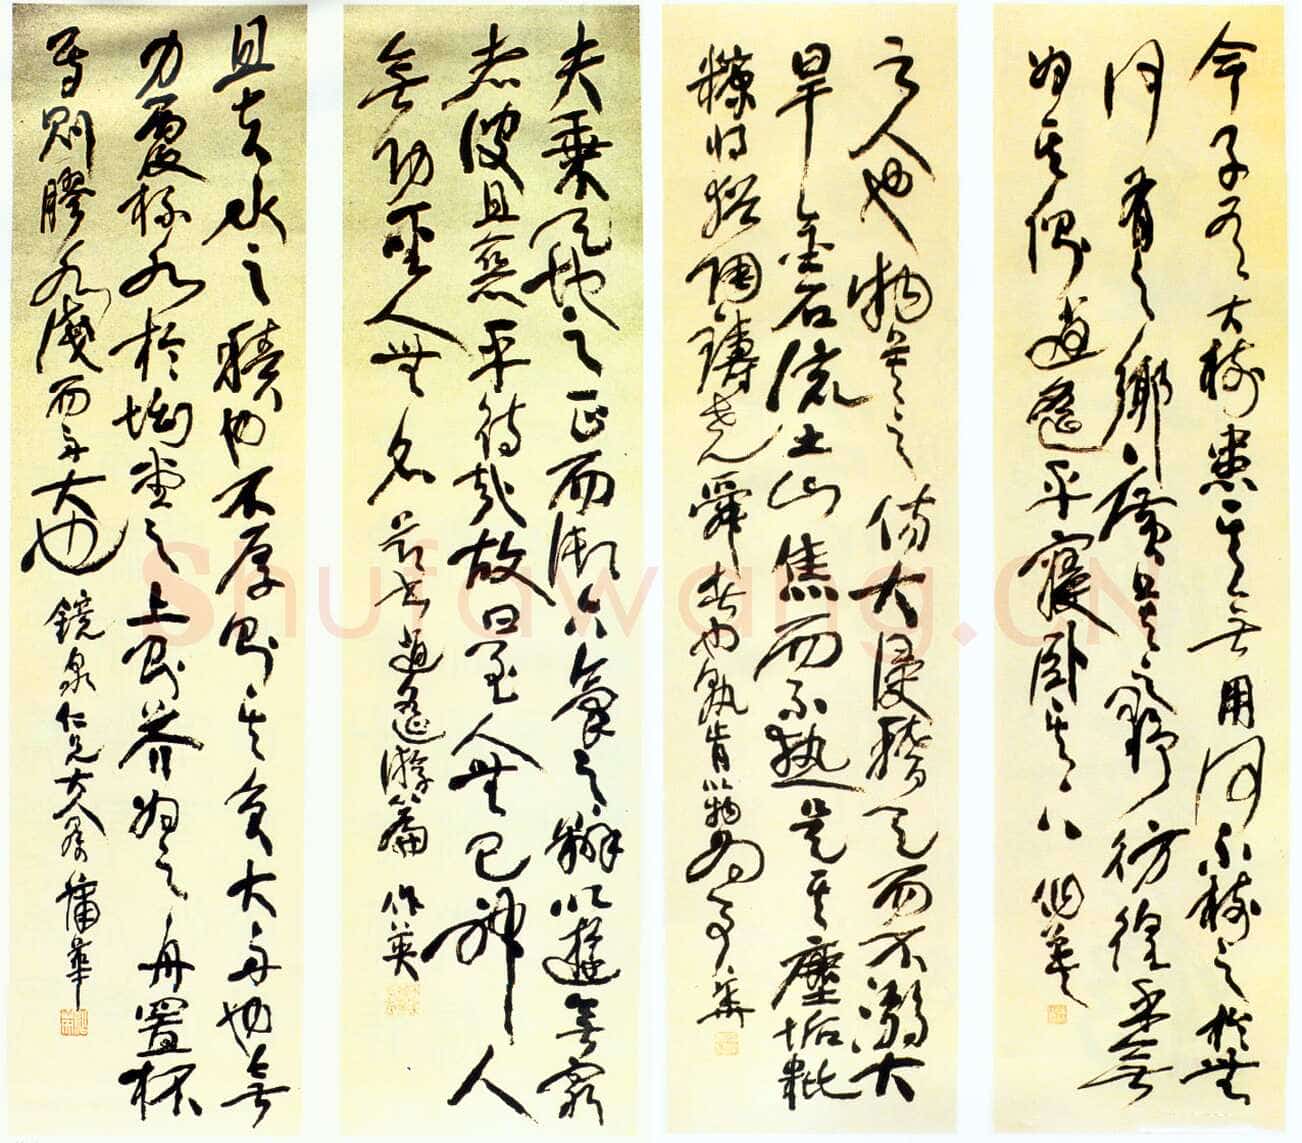 今子有大樹患其無用何不樹之於無
何有之鄉廣莫之野彷徨乎無
為其側逍遙乎寢臥其下 作英
之人也物莫之傷大浸稽天而不溺大
旱金石流土山焦而不熱是其塵垢粃
糠將猶陶鑄堯舜者也孰肯以物為事 華
夫乘天地之正而御六氣之辯以遊無窮
者彼且惡乎待哉故曰至人無己神人
無功聖人無名 逍遙游篇 作英
且夫水之積也不厚則其負大舟也無
力覆杯水於坳堂之上則芥為之舟置杯
焉則膠水淺而舟大也 鏡泉仁兄大人屬 蒲華
Shufawang.CN